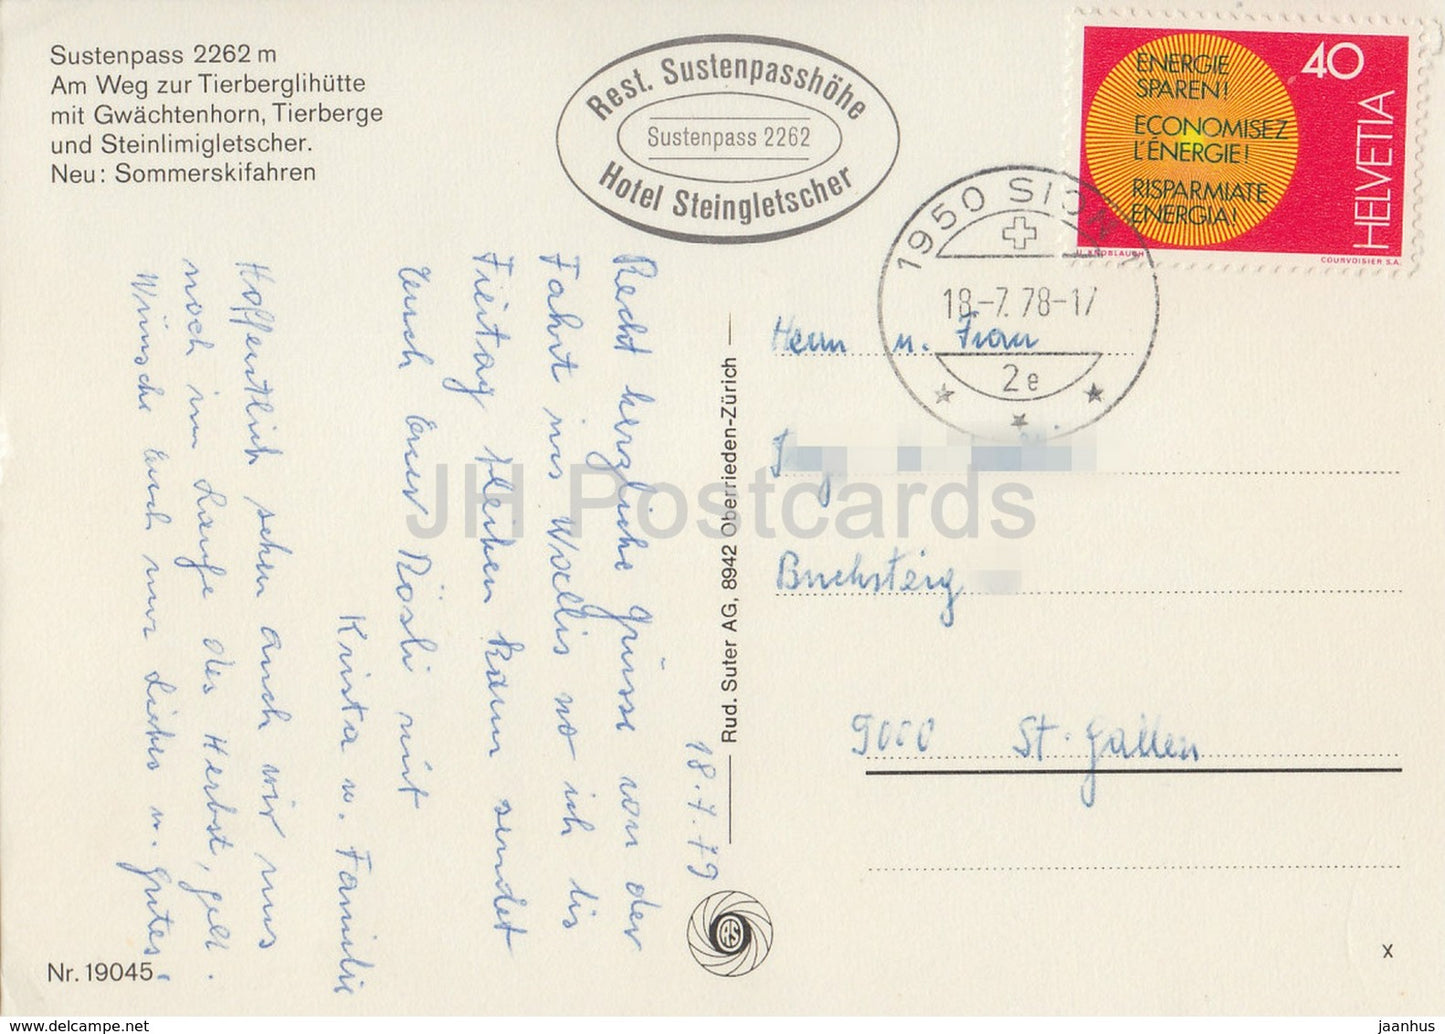 Sustenpass 2262 m
Am Weg zur Tierberglihütte
mit Gwächtenhorn, Tierberge
und Steinlimigletscher.
Neu: Sommerskifahren
Rest. Sustenpasshöhe
Sustenpass 2262
Hotel Steingletscher
ENERGIE
SPAREN!
ECONOMISEZ
L'ÉNERGIE!
RISPARMIATE
ENERGIA!
40
HELVETIA
U. KNOBLAUCH
COURVOISIER S.A.
1950 SION 1
18-7.78-17
2e
18.7.79
Recht herzliche Grüsse von der
Fahrt ins Wallis wo ich bis
Freitag bleiben kann sendet
Euch Eur Rösli mit
Krista u. Familie
Hoffentlich sehen auch wir uns
noch im Laufe des Herbst, gell.
Wünsche Euch nur Liebes u. Gutes.
Herrn u. Frau
Buchsteig
9000 St. Gallen
Rud. Suter AG, 8942 Oberrieden-Zürich
RS
Nr. 19045
x
JH Postcards
https://www.delcampe.net
jaanhus